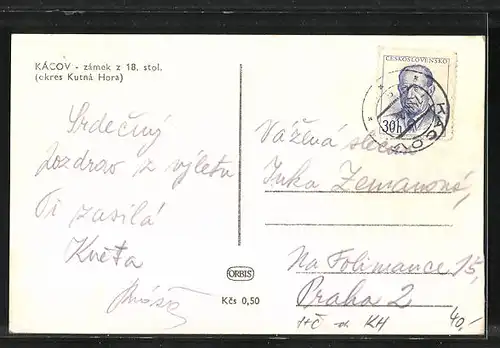 KÁCOV - zámek z 18. stol.
(okres Kutná Hora)
ČESKOSLOVENSKO
30h
KÁCOV
Srdečný
pozdrav z výletu
Ti zasílá
Květa
Vážená slečna
Inka Zemanová,
Na Folimance 15,
Praha 2
ORBIS
Kčs 0,50
KH
40,-